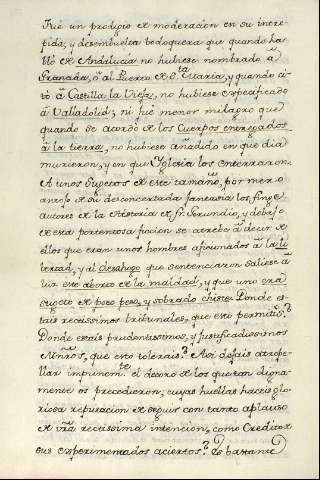 Fuè un prodigio de moderacion en su intre-
pida, y desembuelta bodoquera que quando ha-
blò de Andalucia no hubiese nombrado â
Granada, ò al Puerto de S.ta Maria, y quando ci-
tò â Castilla la Vieja, no hubiese especificado
â Valladolid; ni fuè menor milagro que
quando se acordò de los Cuerpos entregados
â la tierra, no hubiese añadido en que dia
murieron, y en que Yglesia los enterraron.
A unos Sugetos de este tamaño, por mero
antojo de su desconcertada fantasia los finge
autores de la Historia de Fr. Gerundio, y debajo
de esta portentosa ficcion se atrebe â decir de
ellos que eran unos hombres aficionados â la li-
bertad, y al desahogo que sentenciaron saliese â
luz este aborto de la maldad, y que uno era
sugeto de poco peso, y sobrado chiste. Donde es-
tais rectissimos tribunales, que esto permitis?
Donde estais prudentissimos, y justificadissimos
Minros, que esto tolerais? Asi dejais atrope-
llar impunem.te el decoro de los que tan digna-
mente os precedieron; cuyas huellas haceis glo-
riosa reputacion de seguir con tanto aplauso
de vrã rectissima intencion, como Credito de
sus experimentados aciertos? Es bastante